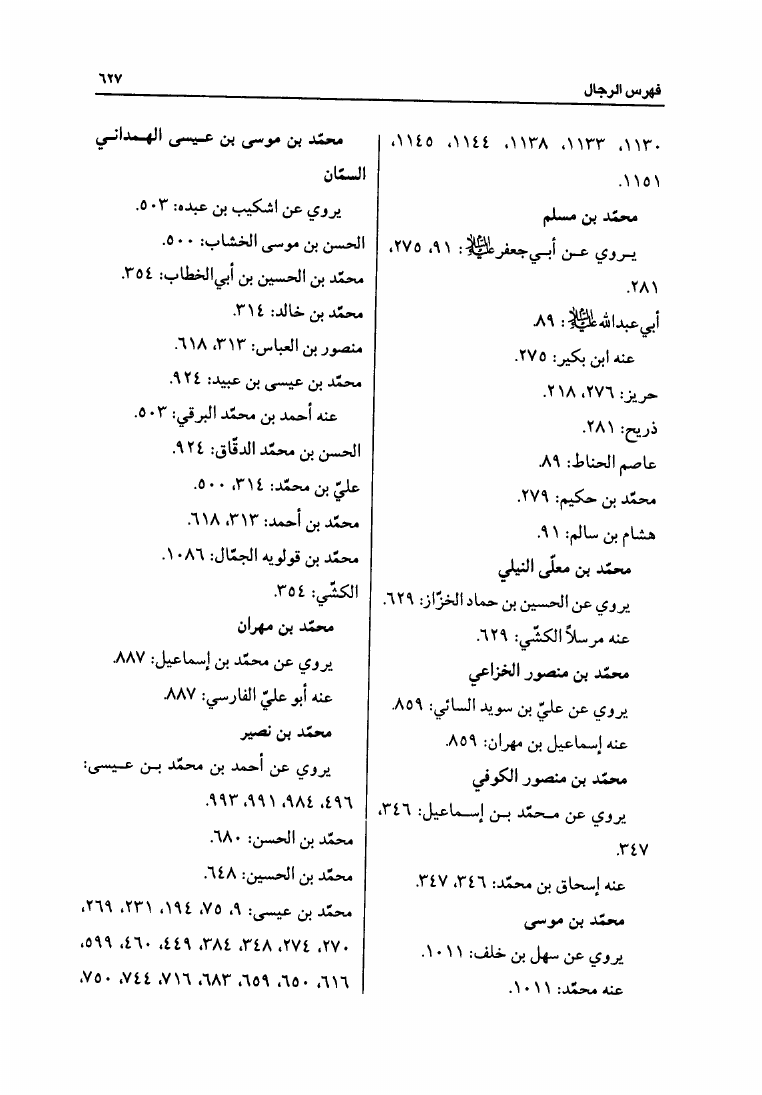 فهرس الرجال
٦٢٧
١١٣٠، ١١٣٣، ١١٣٨، ١١٤٤، ١١٤٥،
١١٥١.
محمّد بن مسلم
يـروي عـن أبـي‌جعفر ﷺ: ٩١، ٢٧٥،
٢٨١.
أبي‌عبدالله ﷺ: ٨٩.
عنه ابن بكير: ٢٧٥.
حريز: ٢٧٦، ٢١٨.
ذريح: ٢٨١.
عاصم الحناط: ٨٩.
محمّد بن حكيم: ٢٧٩.
هشام بن سالم: ٩١.
محمّد بن معلّى النيلي
يروي عن الحسين بن حماد الخزّاز: ٦٢٩.
عنه مرسلاً الكشّي: ٦٢٩.
محمّد بن منصور الخزاعي
يروي عن عليّ بن سويد السائي: ٨٥٩.
عنه إسماعيل بن مهران: ٨٥٩.
محمّد بن منصور الكوفي
يروي عن مـحمّد بـن إسـماعيل: ٣٤٦،
٣٤٧.
عنه إسحاق بن محمّد: ٣٤٦، ٣٤٧.
محمّد بن موسى
يروي عن سهل بن خلف: ١٠١١.
عنه محمّد: ١٠١١.
محمّد بن موسى بن عـيسى الهـمداني
السمّان
يروي عن اشكيب بن عبده: ٥٠٣.
الحسن بن موسى الخشاب: ٥٠٠.
محمّد بن الحسين بن أبي‌الخطاب: ٣٥٤.
محمّد بن خالد: ٣١٤.
منصور بن العباس: ٣١٣، ٦١٨.
محمّد بن عيسى بن عبيد: ٩٢٤.
عنه أحمد بن محمّد البرقي: ٥٠٣.
الحسن بن محمّد الدقّاق: ٩٢٤.
عليّ بن محمّد: ٣١٤، ٥٠٠.
محمّد بن أحمد: ٣١٣، ٦١٨.
محمّد بن قولويه الجمّال: ١٠٨٦.
الكشّي: ٣٥٤.
محمّد بن مهران
يروي عن محمّد بن إسماعيل: ٨٨٧.
عنه أبو عليّ الفارسي: ٨٨٧.
محمّد بن نصير
يروي عن أحمد بن محمّد بـن عـيسى:
٤٩٦، ٩٨٤، ٩٩١، ٩٩٣.
محمّد بن الحسن: ٦٨٠.
محمّد بن الحسين: ٦٤٨.
محمّد بن عيسى: ٩، ٧٥، ١٩٤، ٢٣١، ٢٦٩،
٢٧٠، ٢٧٤، ٣٤٨، ٣٨٤، ٤٤٩، ٤٦٠، ٥٩٩،
٦١٦، ٦٥٠، ٦٥٩، ٦٨٣، ٧١٦، ٧٤٤، ٧٥٠،